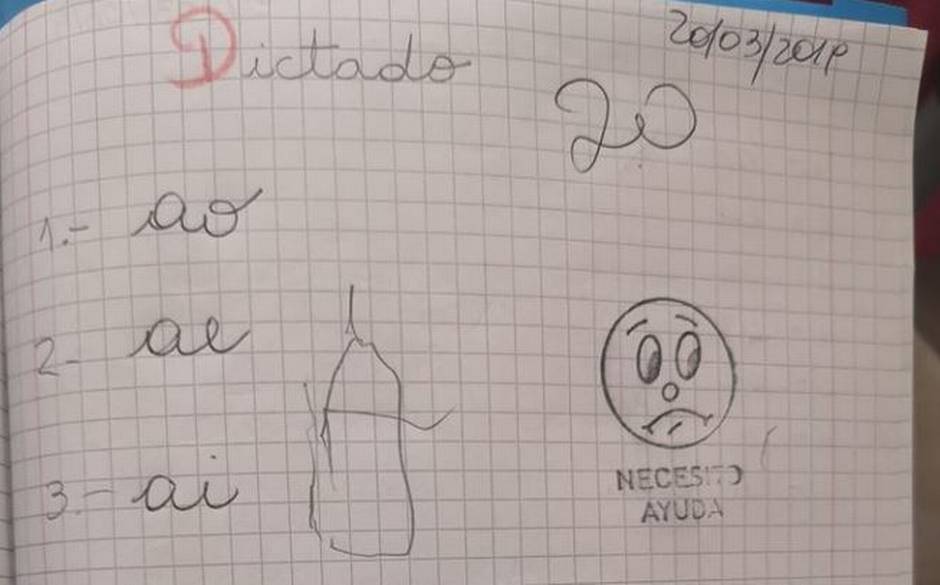 Dictado
20/03/2019
20
1.- ao
2- ae
3- ai
NECESITO
AYUDA